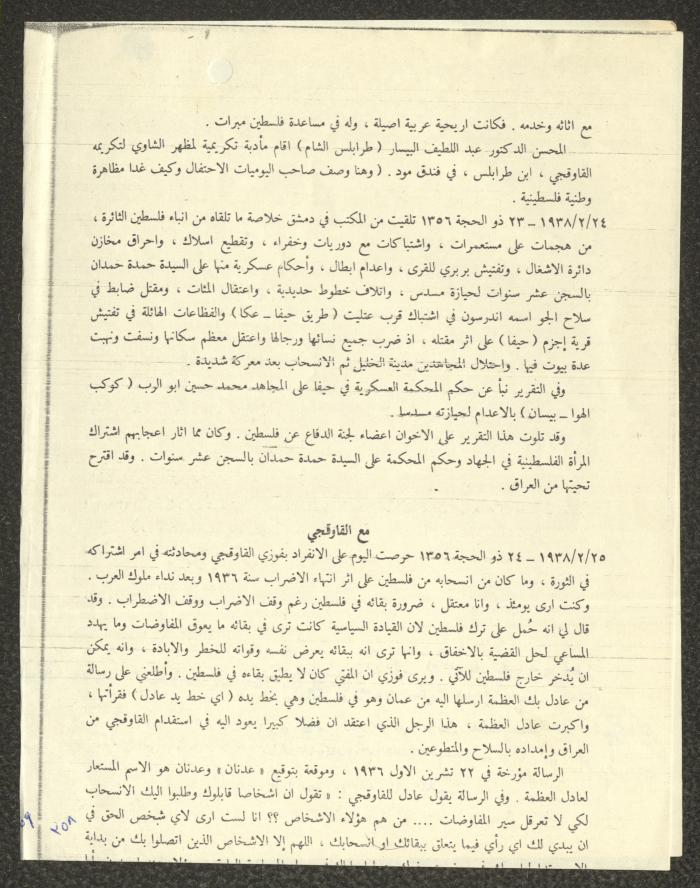 مع اثاثه وخدمه . فكانت اريحية عربية اصيلة ، وله في مساعدة فلسطين مبرات .
المحسن الدكتور عبد اللطيف البيسار ( طرابلس الشام ) اقام مأدبة تكريمية لمظهر الشاوي لتكريمه
القاوقجي ، ابن طرابلس ، في فندق مود . ( وهنا وصف صاحب اليوميات الاحتفال وكيف غدا مظاهرة
وطنية فلسطينية .
١٩٣٨/٢/٢٤ – ٢٣ ذو الحجة ١٣٥٦ تلقيت من المكتب في دمشق خلاصة ما تلقاه من انباء فلسطين الثائرة ،
من هجمات على مستعمرات ، واشتباكات مع دوريات وخفراء ، وتقطيع اسلاك ، واحراق مخازن
دائرة الاشغال ، وتفتيش بربري للقرى ، واعدام ابطال ، وأحكام عسكرية منها على السيدة حمدة حمدان
بالسجن عشر سنوات لحيازة مسدس ، واتلاف خطوط حديدية ، واعتقال المئات ، ومقتل ضابط في
سلاح الجو اسمه اندرسون في اشتباك قرب عتليت ( طريق حيفا – عكا ) والفظاعات الهائلة في تفتيش
قرية إجزم ( حيفا ) على اثر مقتله ، اذ ضرب جميع نسائها ورجالها واعتقل معظم سكانها ونسفت ونهبت
عدة بيوت فيها . واحتلال المجاهدين مدينة الخليل ثم الانسحاب بعد معركة شديدة .
وفي التقرير نبأ عن حكم المحكمة العسكرية في حيفا على المجاهد محمد حسين ابو الرب ( كوكب
الهوا – بيسان ) بالاعدام لحيازته مسدس .
وقد تلوت هذا التقرير على الاخوان اعضاء لجنة الدفاع عن فلسطين . وكان مما اثار اعجابهم اشتراك
المرأة الفلسطينية في الجهاد وحكم المحكمة على السيدة حمدة حمدان بالسجن عشر سنوات . وقد اقترح
تحيتها من العراق .
مع القاوقجي
١٩٣٨/٢/٢٥ – ٢٤ ذو الحجة ١٣٥٦ حرصت اليوم على الانفراد بفوزي القاوقجي ومحادثته في امر اشتراكه
في الثورة ، وما كان من انسحابه من فلسطين على اثر انتهاء الاضراب سنة ١٩٣٦ وبعد نداء ملوك العرب .
وكنت ارى يومئذ ، وانا معتقل ، ضرورة بقائه في فلسطين رغم وقف الاضراب ووقف الاضطراب . وقد
قال لي انه حُمل على ترك فلسطين لان القيادة السياسية كانت ترى في بقائه ما يعوق المفاوضات وما يهدد
المساعي لحل القضية بالاخفاق ، وانها ترى انه ببقائه يعرض نفسه وقواته للخطر والابادة ، وانه يمكن
ان يُدخر خارج فلسطين للآتي . ويرى فوزي ان المفتي كان لا يطيق بقاءه في فلسطين . وأطلعني على رسالة
من عادل بك العظمة ارسلها اليه من عمان وهو في فلسطين وهي بخط يده ( اي خط يد عادل ) فقرأتها ،
واكبرت عادل العظمة ، هذا الرجل الذي اعتقد ان فضلا كبيرا يعود اليه في استقدام القاوقجي من
العراق وإمداده بالسلاح والمتطوعين .
الرسالة مؤرخة في ٢٢ تشرين الاول ١٩٣٦ ، وموقعة بتوقيع « عدنان » وعدنان هو الاسم المستعار
لعادل العظمة . وفي الرسالة يقول عادل للقاوقجي : « تقول ان اشخاصا قابلوك وطلبوا اليك الانسحاب
لكي لا تعرقل سير المفاوضات .... من هم هؤلاء الاشخاص ؟؟ انا لست ارى لاي شخص الحق في
ان يبدي لك اي رأي فيما يتعلق ببقائك او انسحابك ، اللهم إلا الاشخاص الذين اتصلوا بك من بداية
٢٥٨